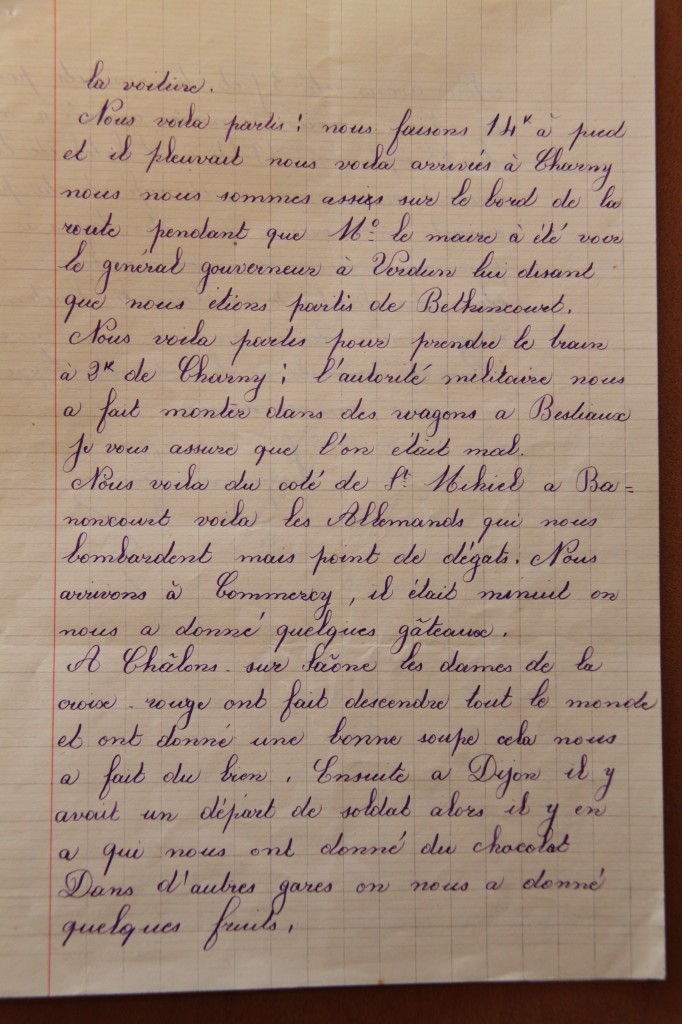 la voiture.
Nous voila partis : nous faisons 14ᴷ à pied
et il pleuvait nous voila arrivés à Charny
nous nous sommes assis sur le bord de la
route pendant que Mᵒ le maire à été voir
le général gouverneur à Verdun lui disant
que nous étions partis de Bethincourt.
Nous voila partis pour prendre le train
à 2ᴷ de Charny ; l'autorité militaire nous
a fait monter dans des wagons a Bestiaux
je vous assure que l'on était mal.
Nous voila du coté de Sᵗ Mihiel a Ba=
noncourt voila les Allemands qui nous
bombardent mais point de dégats. Nous
arrivons à Commercy, il était minuit on
nous a donné quelques gâteaux.
A Châlons-sur Saône les dames de la
croix-rouge ont fait descendre tout le monde
et ont donné une bonne soupe cela nous
a fait du bien. Ensuite a Dijon il y
avait un départ de soldat alors il y en
a qui nous ont donné du chocolat
Dans d'autres gares on nous a donné
quelques fruits.